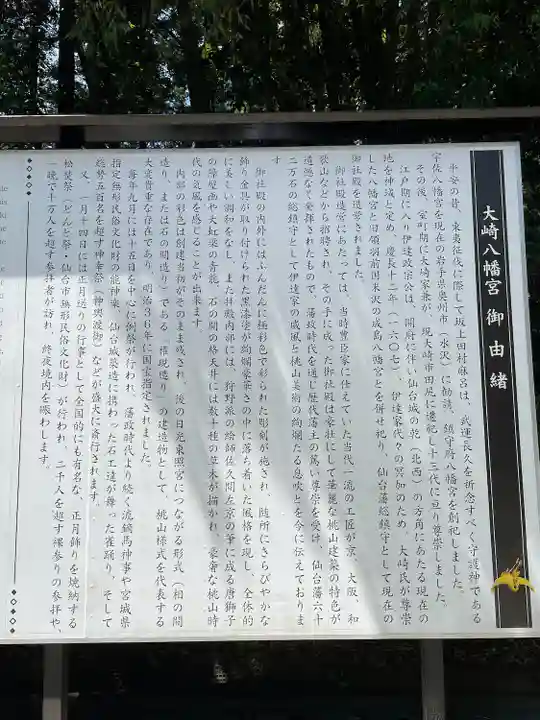 大崎八幡宮 御由緒
平安の昔、東夷征伐に際して坂上田村麻呂は、武運長久を祈念すべく守護神である
宇佐八幡宮を現在の岩手県奥州市(水沢)に勧請、鎮守府八幡宮を創祀しました。
その後、室町期に大崎家兼が、現大崎市田尻に遷祀し十三代に亘り尊崇しました。
江戸期に入り伊達政宗公は、開府に伴い仙台城の乾(北西)の方角にあたる現在の
地を神域と定め、慶長十二年(一六〇七)、伊達家代々の冥加のため、大崎氏が尊崇
した八幡宮と旧領羽前国米沢の成島八幡宮とを併せ祀り、仙台藩総鎮守として現在の
御社殿を造営されました。
御社殿造営にあたっては、当時豊臣家に仕えていた当代一流の工匠が京、大阪、和
歌山などから招聘され、その手に成った御社殿は豪壮にして華麗な桃山建築の特色が
遺憾なく発揮されたもので、藩政時代を通じ歴代藩主の篤い尊崇を受け、仙台藩六十
二万石の総鎮守として伊達家の威風と桃山美術の絢爛たる息吹とを今に伝えておりま
す。
御社殿の内外にはふんだんに極彩色で彩られた彫刻が施され、随所にきらびやかな
飾り金具が取り付けられた黒漆塗が絢爛豪華さの中に落ち着いた風格を現し、全体的
に美しい調和をなし、また拝殿内部には、狩野派の絵師佐久間左京の筆に成る唐獅子
の障壁画や大虹梁の青龍、石の間の格天井には数十種の草木が描かれ、豪奢な桃山時
代の文風を感じることが出来ます。
内部の彩色は創建当初がそのまま残され、後の日光東照宮につながる形式(相の間
造り、または石の間造り)である「権現造り」の建造物として、桃山様式を代表する
大変貴重な存在であり、明治36年に国宝指定されました。
毎年九月には十五日を中心に例祭が行われ、藩政時代より続く、流鏑馬神事や宮城県
指定無形民俗文化財の能神楽、仙台城築造に携わった石工達が舞った雀踊り、そして
総勢五百名を超す神幸祭(神輿渡御)などが盛大に斎行されます。
又、一月十四日には正月送りの行事として全国的にも有名な、正月飾りを焼納する
松焚祭(どんと祭・仙台市無形民俗文化財)が行われ、二千人を超す裸参りの参拝や、
一晩で十万人を超す参拝者が訪れ、終夜境内を賑わします。